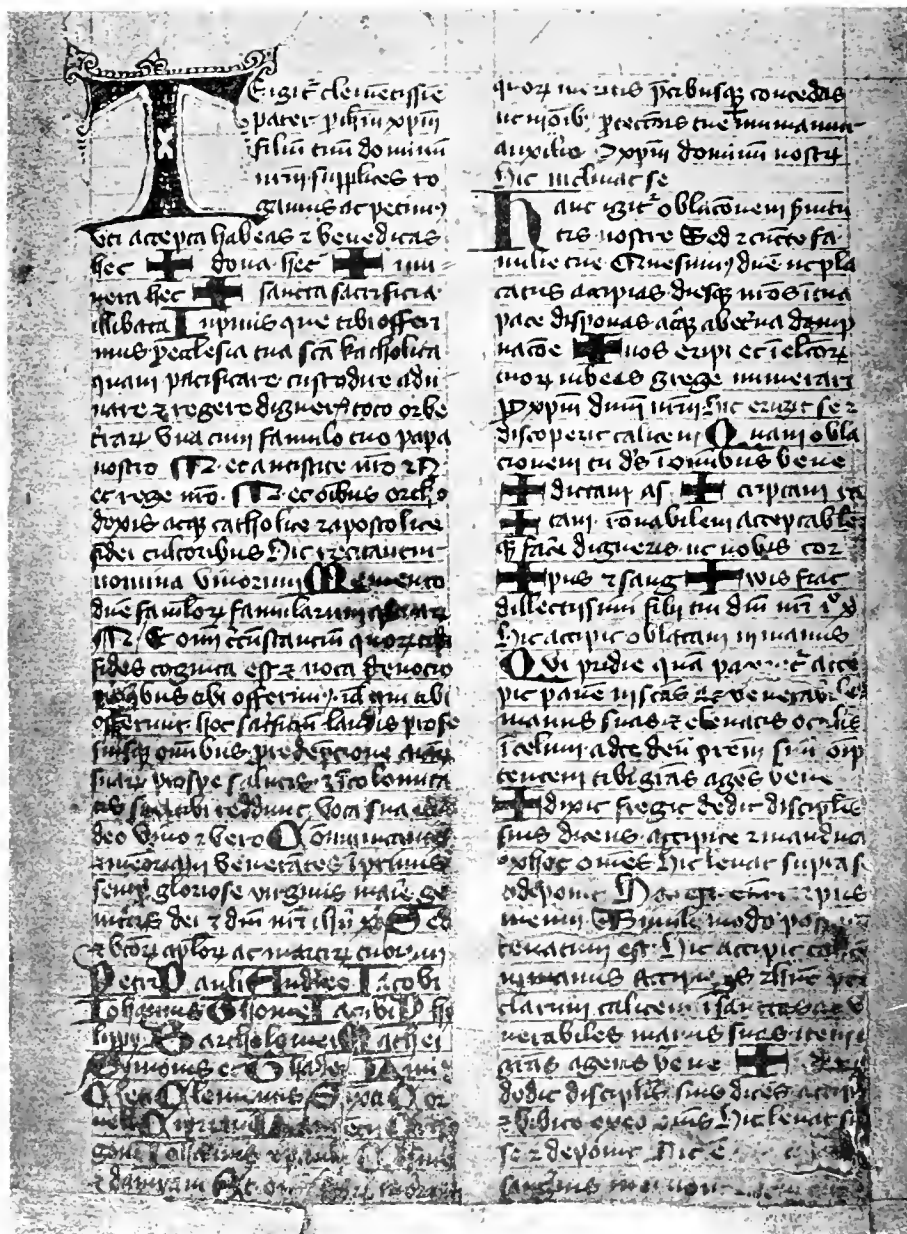 TE igit˜ clemētissīe
pater p ihm xpm
filiū tuū dominū
nrm supplices ro
gamus ac petimus
vti accepta habeas ⁊ benedicas
hec ✚ dona hec ✚ mu
nera hec ✚ sancta sacrificia
illibata Inprimis que tibi offeri
mus p ecclesia tua scā katholica
quam pacificare custodire adu
nare ⁊ regere digneris toto orbe
trarꝝ vna cum famulo tuo papa
nostro N et antistite nro ⁊ N
et rege nro N et oībus ortho
doxis atqꝫ catholice ⁊ apostolice
fidei cultoribus Hic recitantur
nomina vivorum Memento
dne famulorꝝ famularum
N Et omī circūstanciū quorꝝ tibi
fides cognita est ⁊ nota devocio
pro quibus tibi offerimus vel qui tibi
offerunt hoc sacrificiū laudis pro se
suisqꝫ omnibus p redempcione aīarꝝ
suarꝝ p spe salutis ⁊ īcolomita
tis sue tibi reddunt vota sua eterno
deo vivo ⁊ vero Communicantes
⁊ memoriam venerātes Inprimis
semp gloriose virginis marie ge
nitricis dei ⁊ dni nri ihu xp Sed
⁊ btorꝝ aplorꝝ ac martirꝝ tuorum
Petri Pauli Andree Iacobi
Iohannis Thome Iacobi Phi
lippi Bartholomei Mathei
Symonis et Thadei Lini
Cleti Clementis Sixti Cor
neli Cipriani Laurencii Criso
goni Iohannis ⁊ pauli Cosme
⁊ damyani Et oīm scōrꝝ tuorum
quorꝝ meritis pcibusqꝫ concedas
ut in oīb ptectionis tue muniamur
auxilio P xpm dominum nostrꝝ
Hic inclinat se
Hanc igit˜ oblacōnem svitu
tis nostre Sed ⁊ cuncte fa
milie tue Quesumus dne ut pla
catus accipias diesqꝫ nros ī tua
pace disponas atqꝫ ab etna damp
nacōe ✚ nos eripi et ī elcōrꝝ
tuorꝝ iubeas grege numerari
P xpm dnm nrm Hic erigit se ⁊
discoperit calicem Quam obla
cionem tu ds ī omnibus bene
✚ dictam as ✚ criptam ra
✚ tam rōnabilem acceptabilē
qꝫ facē digneris ut nobis cor
✚ pus ⁊ sang ✚ wis fiat
dillectissimi filii tui dni nri ih x
Hic accipit oblatam in manus
Qui pridie quā pateret˜ acce
pit panē in scās ac venerabiles
manus suas ⁊ elevatis oculis
ī celum ad te deū prem suū oīp
tentem tibi grās agēs bene
✚ dixit fregit dedit discipulis
suis dicens accipite ⁊ manduca
te ex hoc omēs Hic levat supra se
⁊ deponit Hoc est enim corpus
meum Simili modo postqꝫ
cenatum est Hic accipit calicē
in manus Accipiēs ⁊ hūc pre
clarum calicem ī sanctas ac ve
nerabiles manus suas item
grās agens bene ✚ dixit
dedit discipulis suis dicēs accipite
⁊ bibite ex eo omēs Hic levat supra
se ⁊ deponit Hic E
sanguinis mei novi